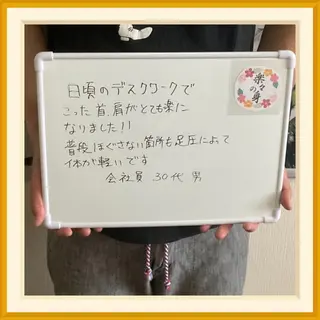 日頃のデスクワークで
こった首、肩がとても楽に
なりました!!
普段ほぐさない箇所も足圧によって
体が軽いです
会社員 30代 男
楽々の身